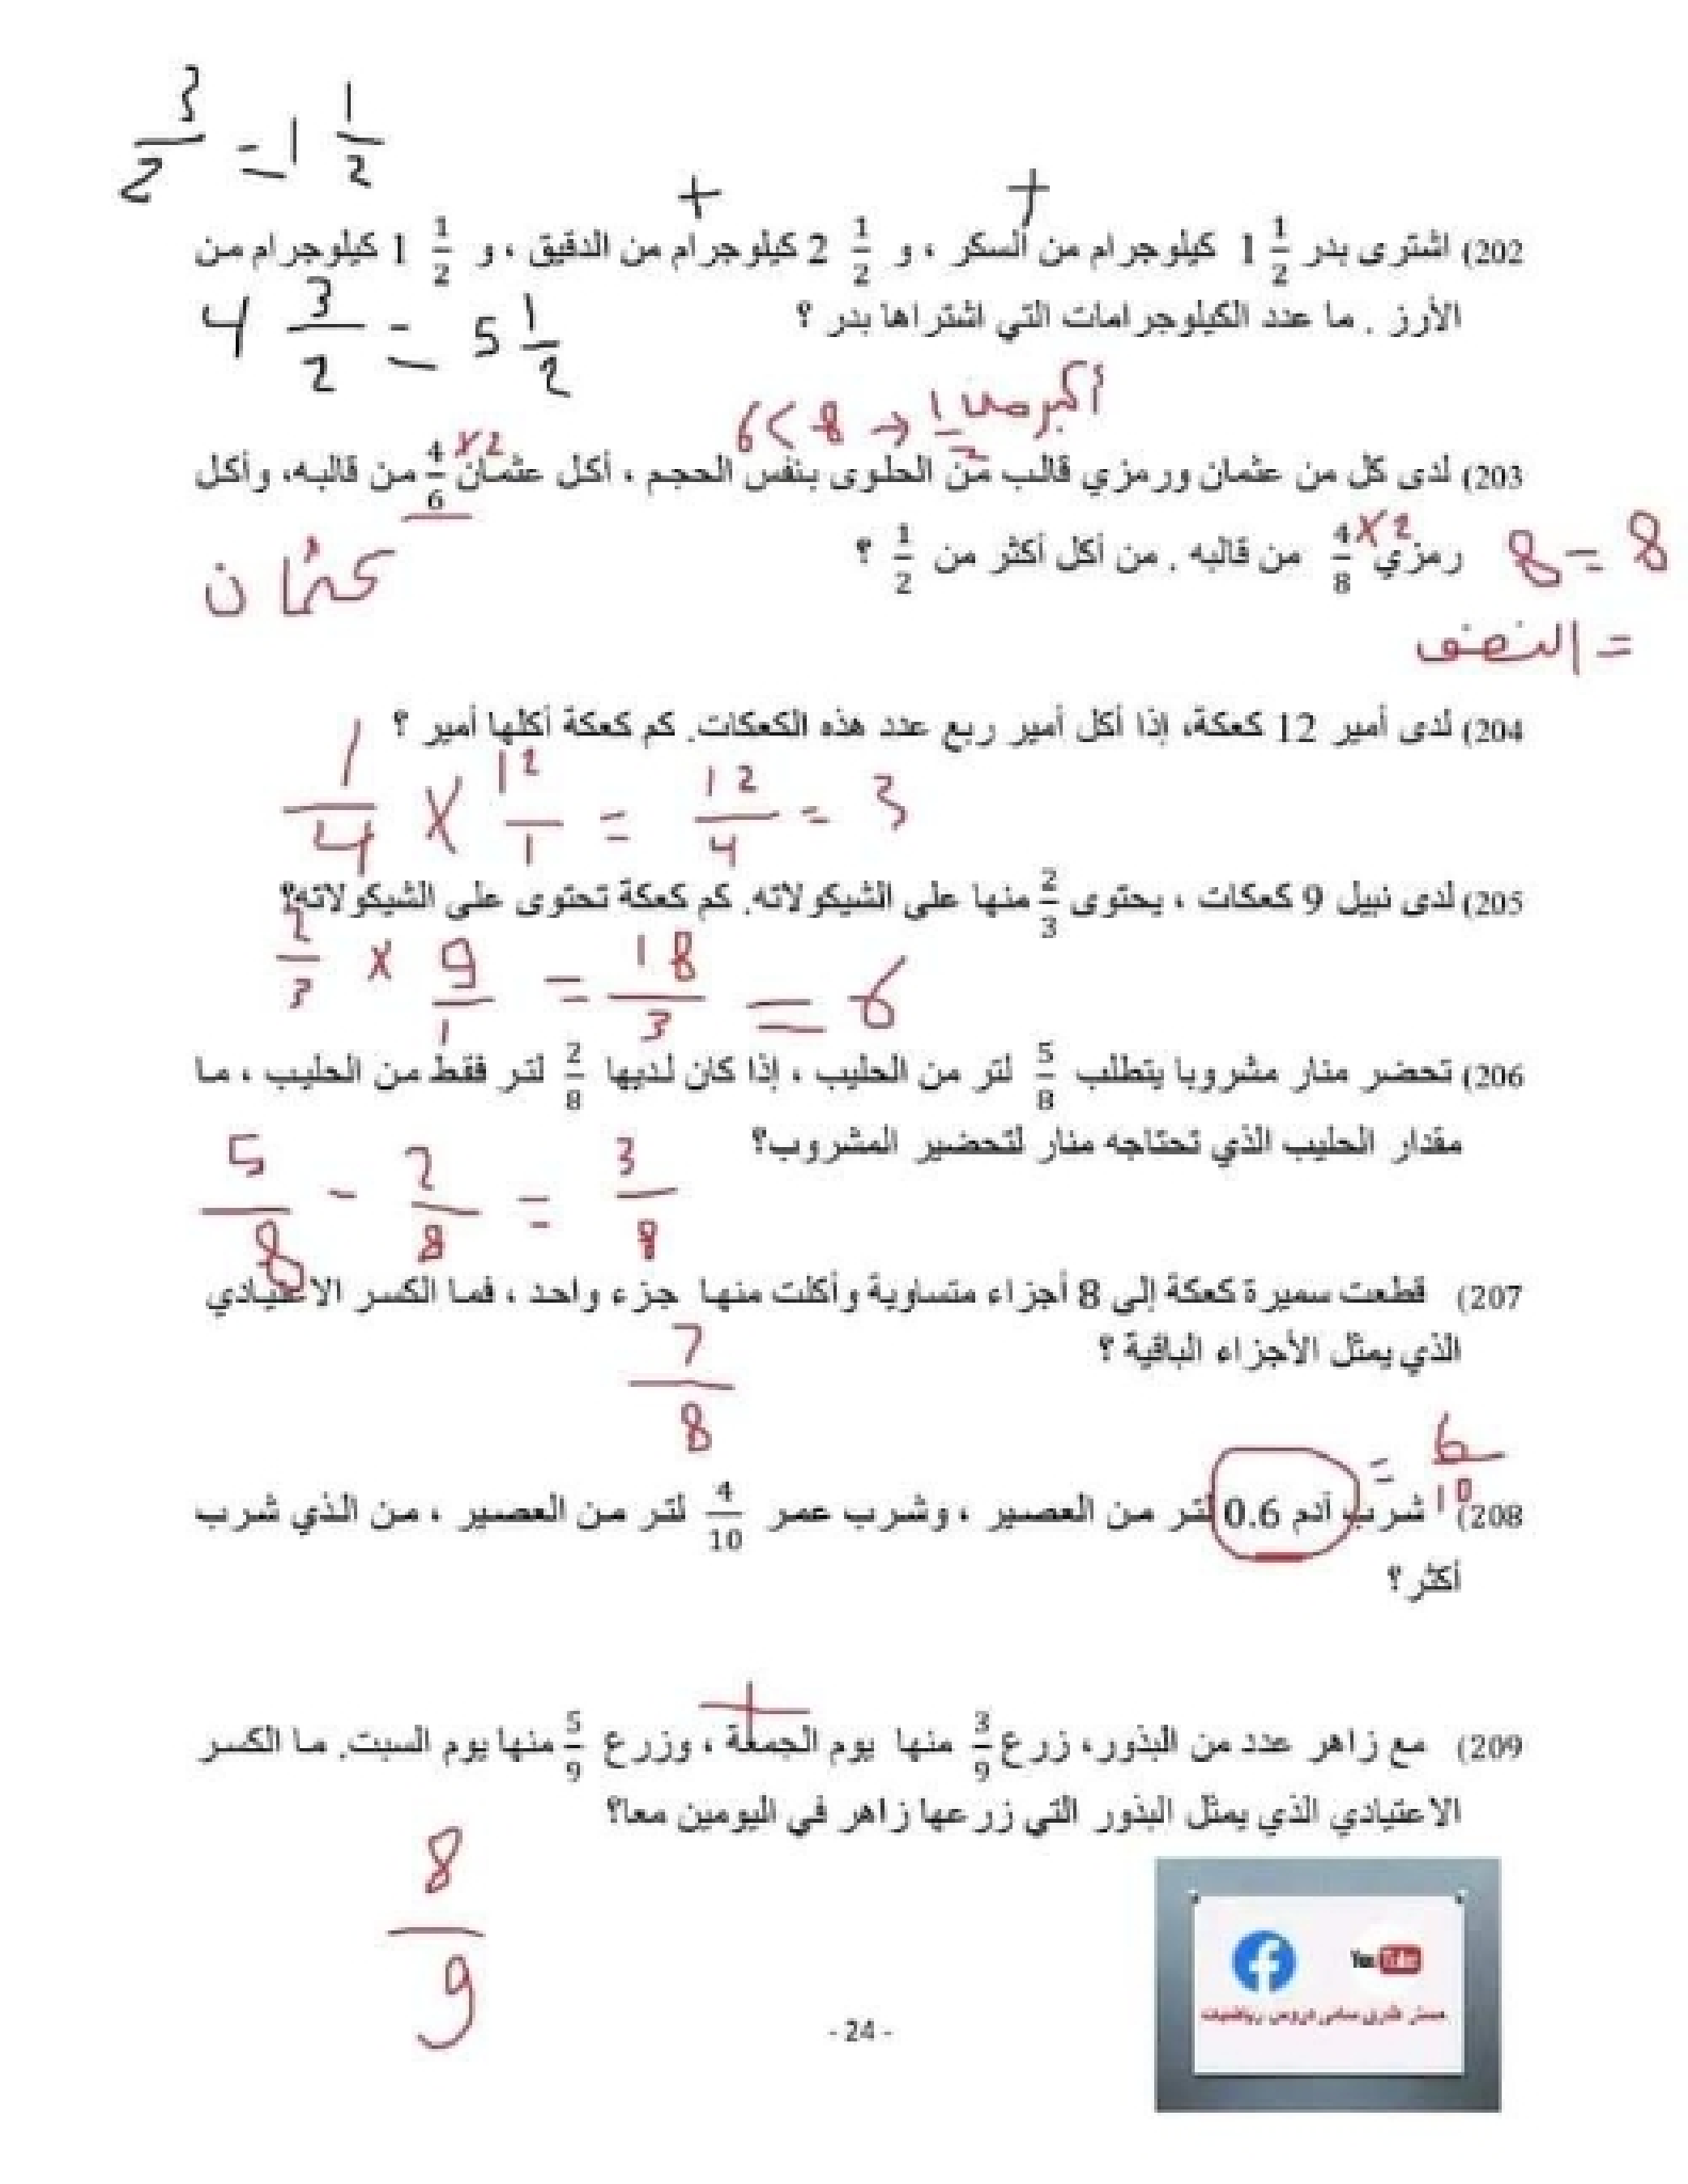 3/2 = 1 1/2
+ +
202) اشترى بدر 1 1/2 كيلوجرام من السكر ، و 2 1/2 كيلوجرام من الدقيق ، و 1 1/2 كيلوجرام من
الأرز . ما عدد الكيلوجرامات التي اشتراها بدر ؟
4 3/2 = 5 1/2
6 < 8 → أكبر من 1/2
203) لدى كل من عثمان ورمزي قالب من الحلوى بنفس الحجم ، أكل عثمان 4/6 من قالبه، وأكل
×2
رمزي 4/8 من قالبه . من أكل أكثر من 1/2 ؟
×2
8 = 8
= النصف
عثمان
204) لدى أمير 12 كعكة، إذا أكل أمير ربع عدد هذه الكعكات. كم كعكة أكلها أمير ؟
1/4 × 12/1 = 12/4 = 3
205) لدى نبيل 9 كعكات ، يحتوى 2/3 منها على الشيكولاته. كم كعكة تحتوى على الشيكولاته؟
2/3 × 9/1 = 18/3 = 6
206) تحضر منار مشروبا يتطلب 5/8 لتر من الحليب ، إذا كان لديها 2/8 لتر فقط من الحليب ، ما
مقدار الحليب الذي تحتاجه منار لتحضير المشروب؟
5/8 - 2/8 = 3/8
207) قطعت سميرة كعكة إلى 8 أجزاء متساوية وأكلت منها جزء واحد ، فما الكسر الاعتيادي
الذي يمثل الأجزاء الباقية ؟
7/8
= 6/10
208) شرب آدم 0.6 لتر من العصير ، وشرب عمر 4/10 لتر من العصير ، من الذي شرب
أكثر ؟
+
209) مع زاهر عدد من البذور، زرع 3/9 منها يوم الجمعة ، وزرع 5/9 منها يوم السبت. ما الكسر
الاعتيادي الذي يمثل البذور التي زرعها زاهر في اليومين معا؟
8/9
f YouTube
مستر طارق سامى دروس رياضيات
- 24 -